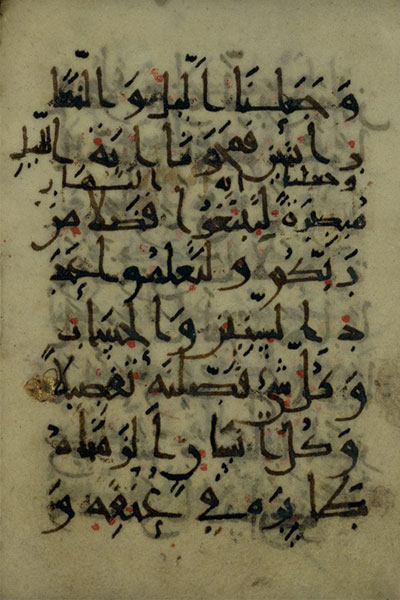 وَجَعَلنَا الَّيلَ وَالنَّهَا
رَ ايَتَينِ فَمَحَونَا ايَةَ الَّيلِ
وجعلنا اية النهار
مُبصِرَةً لِتَبتَغُوا فَضلًا مِن
رَبِّكُم وَلِتَعلَمُوا عَدَ
دَ السِّنِينَ وَالحِسَابَ
وَكُلَّ شَيءٍ فَصَّلنَهُ تَفصِيلًا
وَكُلَّ انسَانٍ الزَمنَاهُ
طَايِرَهُ فِي عُنُقِهِ وَ